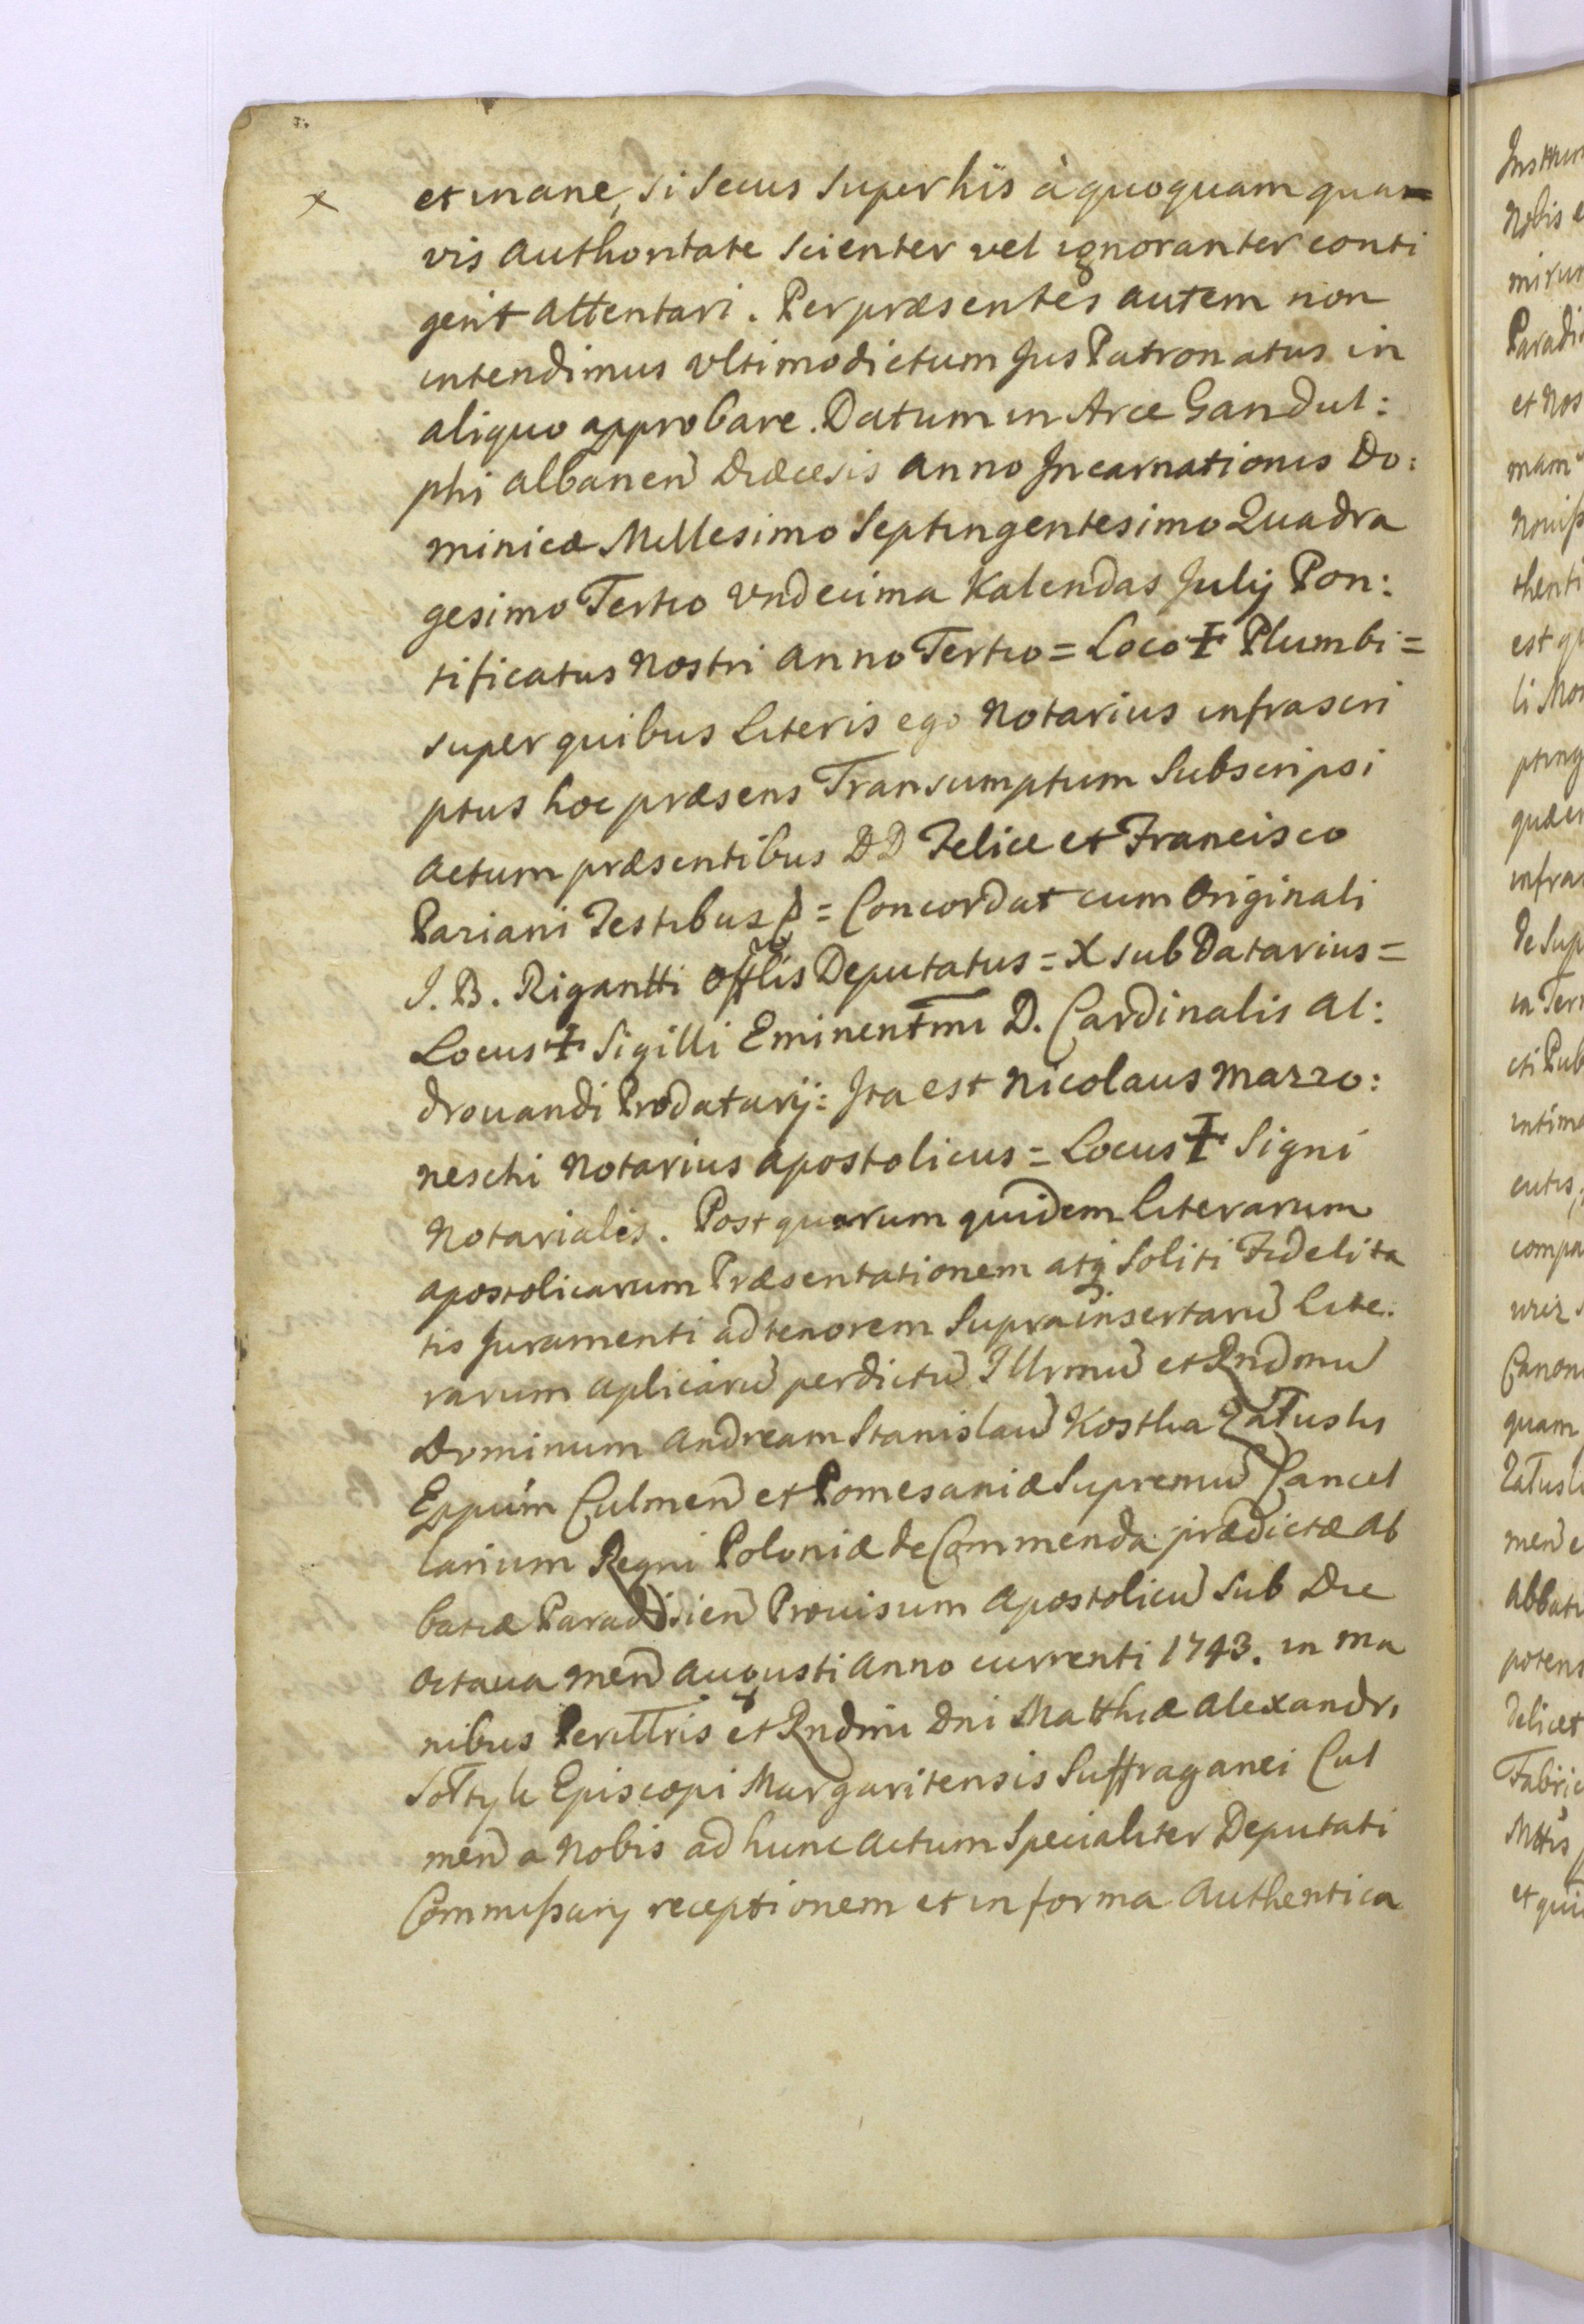 et inane, si secus super hïs à quoquam qua=
vis Authoritate scienter vel ignoranter conti
gerit attentari. Per præsentes autem non
intendimus Vltimodictum Jus Patronatus in
aliquo approbare. Datum in Arce Gandul:
phi Albanen Diæcesis Anno Incarnationis Do:
minicæ Millesimo Septingentesimo Quadra
gesimo Tertio Vndecima Kalendas Julij Pon:
tificatus Nostri Anno Tertio = Loco ☩ Plumbi =
super quibus Literis ego Notarius infrascri
ptus hoc præsens Transumptum Subscripsi
Actum præsentibus DD Felice et Francisco
Pariani Testibus = Concordat cum Originali
J. B. Rigantti Offlis Deputatus = X sub Datarius =
Locus ☩ Sigilli Eminentmi D. Cardinalis Al:
drouandi Prodatarij: Ita est Nicolaus Marzo:
neschi Notarius Apostolicus = Locus ☩ Signi
Notarialis. Post quarum quidem Literarum
Apostolicarum Præsentationem atq Soliti Fidelita
tis Juramenti ad tenorem Supra insertaru Lite:
rarum Aplicaru per dictu Illrmu et Rndmu
Dominum Andream Stanislau Kostka Załuski
Eppum Culmen et Pomesaniæ Supremu Cancel
larium Regni Poloniæ de Commenda prædictæ Ab
batiæ Paradisien Prouisum Apostolicu Sub Die
Octaua Men Augusti Anno currenti 1743. in Ma
nibus Perilltris et Rndmi Dni Matthiæ Alexandri
Sołtyk Episcopi Margaritensis Suffraganei Cul
men a Nobis ad hunc Actum Specialiter Deputati
Commißarij receptionem et in forma Authentica